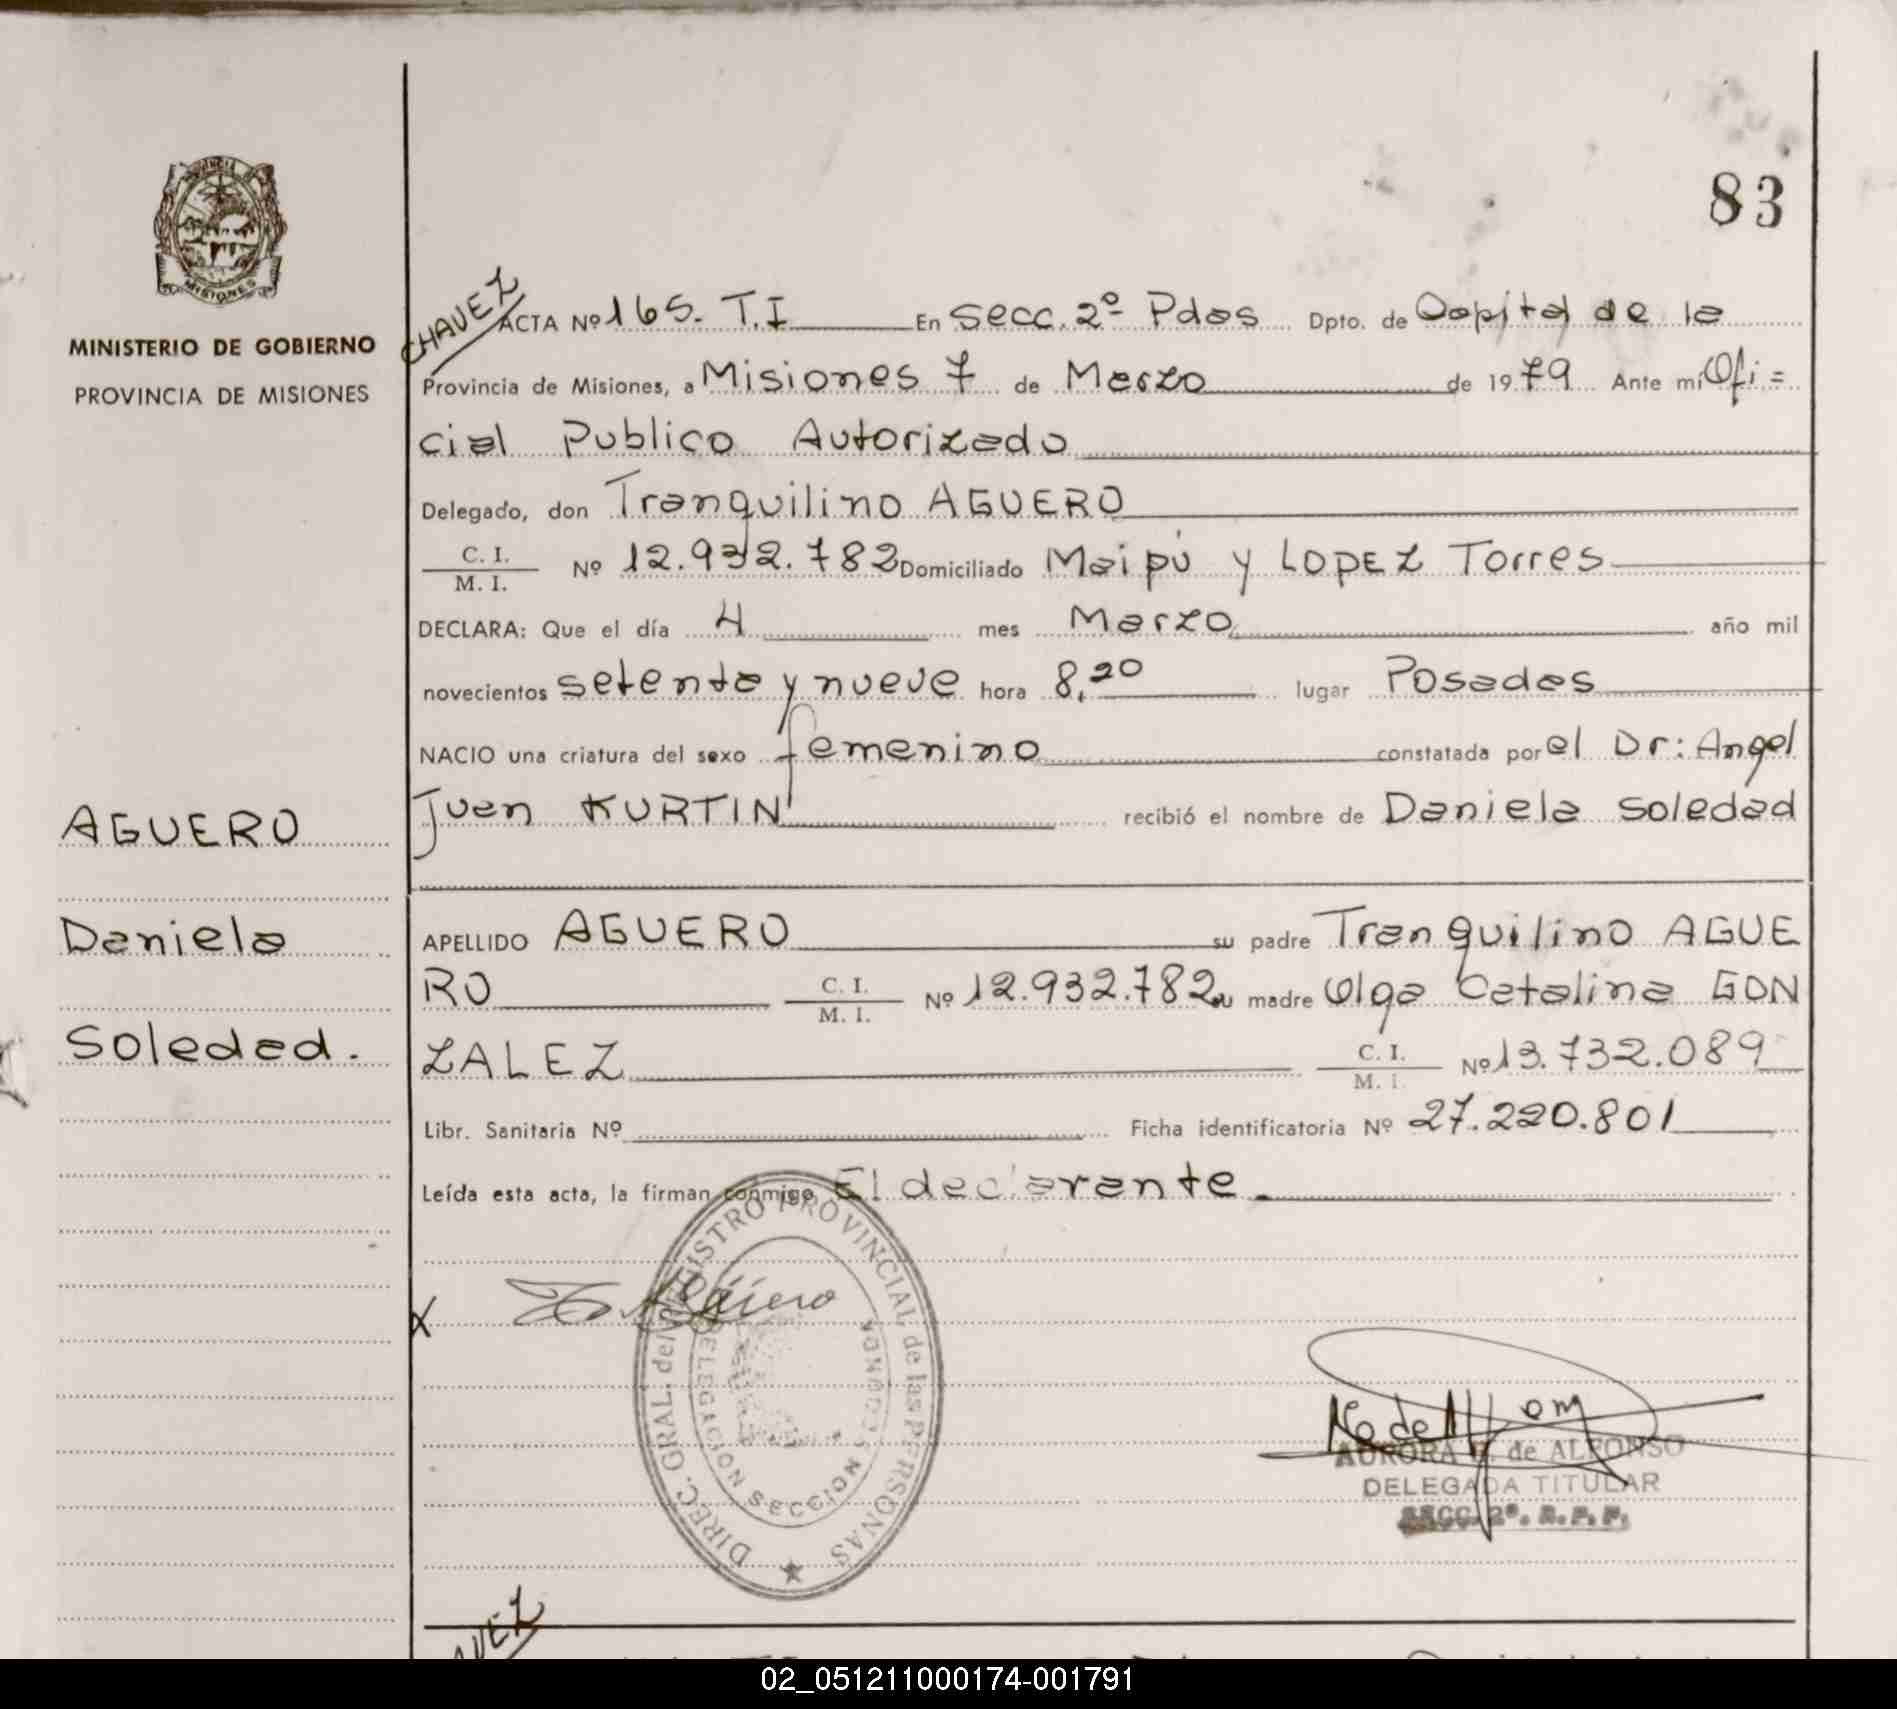 83
CHAVEZ
ACTA Nº 165. T.I En Secc. 2º Pdas Dpto. de Capital de la
MINISTERIO DE GOBIERNO
PROVINCIA DE MISIONES
Provincia de Misiones, a Misiones 7 de Marzo de 1979 Ante mi Ofi=
cial Publico Autorizado
Delegado, don Tranquilino AGUERO
C. I.
M. I.
Nº 12.932.782 Domiciliado Maipú y LOPEZ Torres
DECLARA: Que el día 4 mes Marzo año mil
novecientos setenta y nueve hora 8,20 lugar Posadas
NACIO una criatura del sexo femenino constatada por el Dr: Angel
Juan KURTIN recibió el nombre de Daniela Soledad
AGUERO
Daniela
Soledad.
APELLIDO AGUERO su padre Tranquilino AGUE
RO C. I. M. I. Nº 12.932.782 su madre Olga Catalina GON
ZALEZ C. I. M. I. Nº 13.732.089
Libr. Sanitaria Nº Ficha identificatoria Nº 27.220.801
Leída esta acta, la firman conmigo El declarante.
X Agüero
DIREC. GRAL. del REGISTRO PROVINCIAL de las PERSONAS
DELEGACION SECCION SEGUNDA
AURORA de ALFONSO
DELEGADA TITULAR
SECC. 2º. R. P. P.
02_051211000174-001791